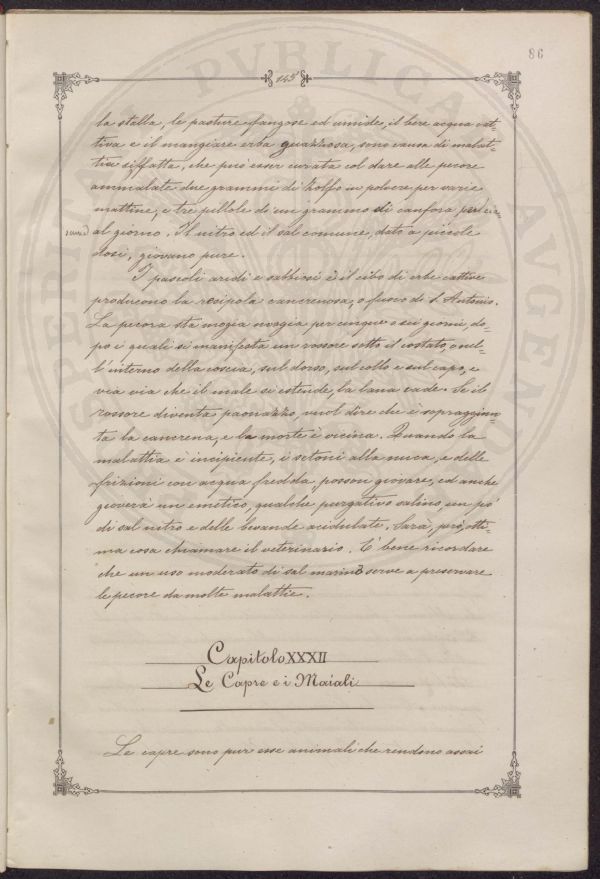 86
145
PVBLICAE
AVGENDAE
la stalla, le pasture fangose ed umide, il bere acqua cat=
tiva e il mangiare erba guazzosa, sono causa di malat=
tia siffatta, che può esser curata col dare alle pecore
ammalate due grammi di zolfo in polvere per varie
mattine, e tre pillole di un grammo di canfora
al giorno. Il nitro ed il sal comune, dato a piccole
dosi, giovano pure.
I pascoli aridi e sabbiosi e il cibo di erbe cattive
producono la resipola cancrenosa, o fuoco di S. Antonio.
La pecora sta mogia mogia per cinque o sei giorni, do=
po i quali si manifesta un rossore sotto il costato, o nel=
l'interno della coscia, sul dorso, sul collo e sul capo, e
via via che il male si estende, la lana cade. Se il
rossore diventa paonazzo, vuol dire che è sopraggiun=
ta la cancrena, e la morte è vicina. Quando la
malattia è incipiente, i setoni alla nuca, e delle
frizioni con acqua fredda, posson giovare, ed anche
gioverà un emetico, qualche purgativo salino, un po'
di sal nitro e delle bevande acidulate. Sarà, però, otti=
ma cosa chiamare il veterinario. È bene ricordare
che un uso moderato di sal marino serve a preservare
le pecore da molte malattie.
Capitolo XXXII
Le Capre e i Maiali
Le capre sono pur esse animali che rendono assai